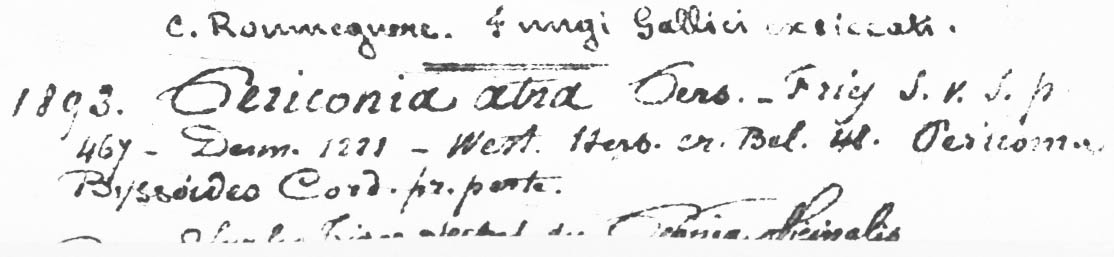 C. Roumeguere. Fungi Gallici exsiccati.
1893. Periconia atra Pers. - Fries S. v. S. p
467 - Desm. 1221 - West. Herb. cr. Bel. 41. Periconia
Byssoides Cord. pr. parte.
Sur les Tiges du officinalis